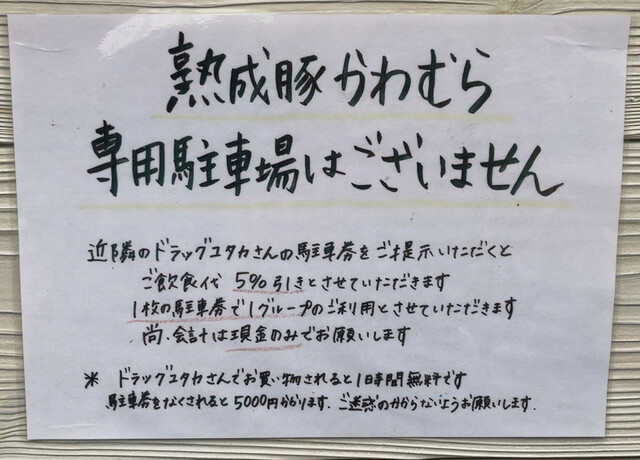 熟成豚かわむら
専用駐車場はございません
近隣のドラッグユタカさんの駐車券をご提示いただくと
ご飲食代 5%引きとさせていただきます
1枚の駐車券で1グループのご利用とさせていただきます
尚、会計は現金のみでお願いします
※ ドラッグユタカさんでお買い物されると1時間無料です
駐車券をなくされると5000円かかります。ご迷惑のかからないようお願いします。